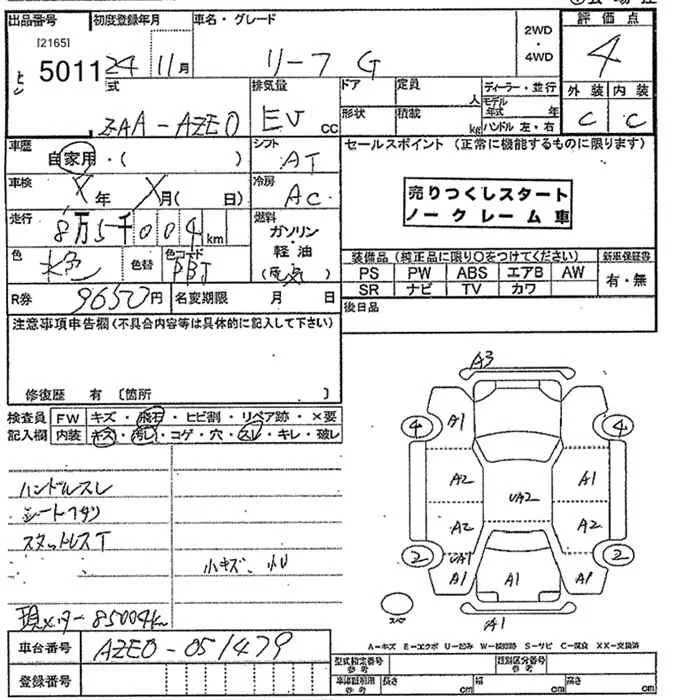 出品番号 初度登録年月 車名・グレード 2WD・4WD 評価点
[2165]
5011 24 11月 リーフ G 4
式 排気量 ドア 定員 人 ディーラー・並行 外装 内装
ZAA-AZE0 EV cc 形状 積載 kg モデル年式 年 ハンドル 左・右 C C
車歴 自家用・( ) シフト AT セールスポイント (正常に機能するものに限ります)
車検 X年 X月( 日) 冷房 AC
売りつくしスタート
ノークレーム車
走行 8万5千004km 燃料 ガソリン・軽油・(電気)
色 色替 色コード PBJ
装備品 (純正品に限り〇をつけてください) 新車保証書
PS PW ABS エアB AW 有・無
SR ナビ TV カワ
R券 9650円 名変期限 月 日 後日品
注意事項申告欄(不具合内容等は具体的に記入して下さい)
修復歴 有 〔箇所 〕
検査員 FW キズ・飛石・ヒビ割・リペア跡・×要
記入欄 内装 キズ・汚レ・コゲ・穴・スレ・キレ・破レ
ハンドルスレ
シート
スタットレスT
小キズ、
現メーター 85004km
A3
4 A1 4
A2 A1
UA2
A2 A2
2 UA1 2
A1 A1 A1
スペア A1
A-キズ E-エクボ U-凹ミ W-補修跡 S-サビ C-腐食 XX-交換済
車台番号 AZE0-051479
登録番号
型式指定番号 参考 類別区分番号 参考
車検証明用 参考 長さ cm 幅 cm 高さ cm